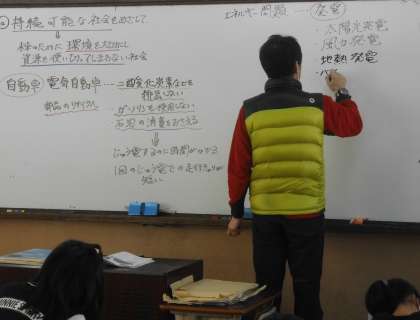 持続可能な社会をめざして
人のために環境を大切にし
資源を使いすててしまわない社会
自動車 電気自動車 ― 二酸化炭素などを
排出しない
部品のリサイクル
ガソリンを使用しない
石油の消費をおさえる
じゅう電するのに時間がかかる
1回のじゅう電での走行きょりが
短い
エネルギー問題 ― 発電
・太陽光発電
・風力発電
・地熱発電